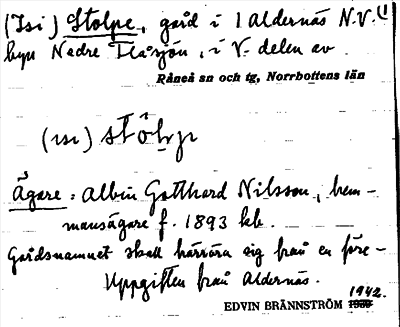 (Isi) Stolpe, gård i 1 Aldernäs N.V. (1
byn Nedre Flåsjön, i V. delen av
Råneå sn och tg, Norrbottens län
(ɪsɪ)
Ägare: Albin Gotthard Nilsson, hem-
mansägare f. 1893 hb.
Gårdsnamnet skall härröra sig från en före-
Uppgiften från Aldernäs.
1942.
EDVIN BRÄNNSTRÖM 1930